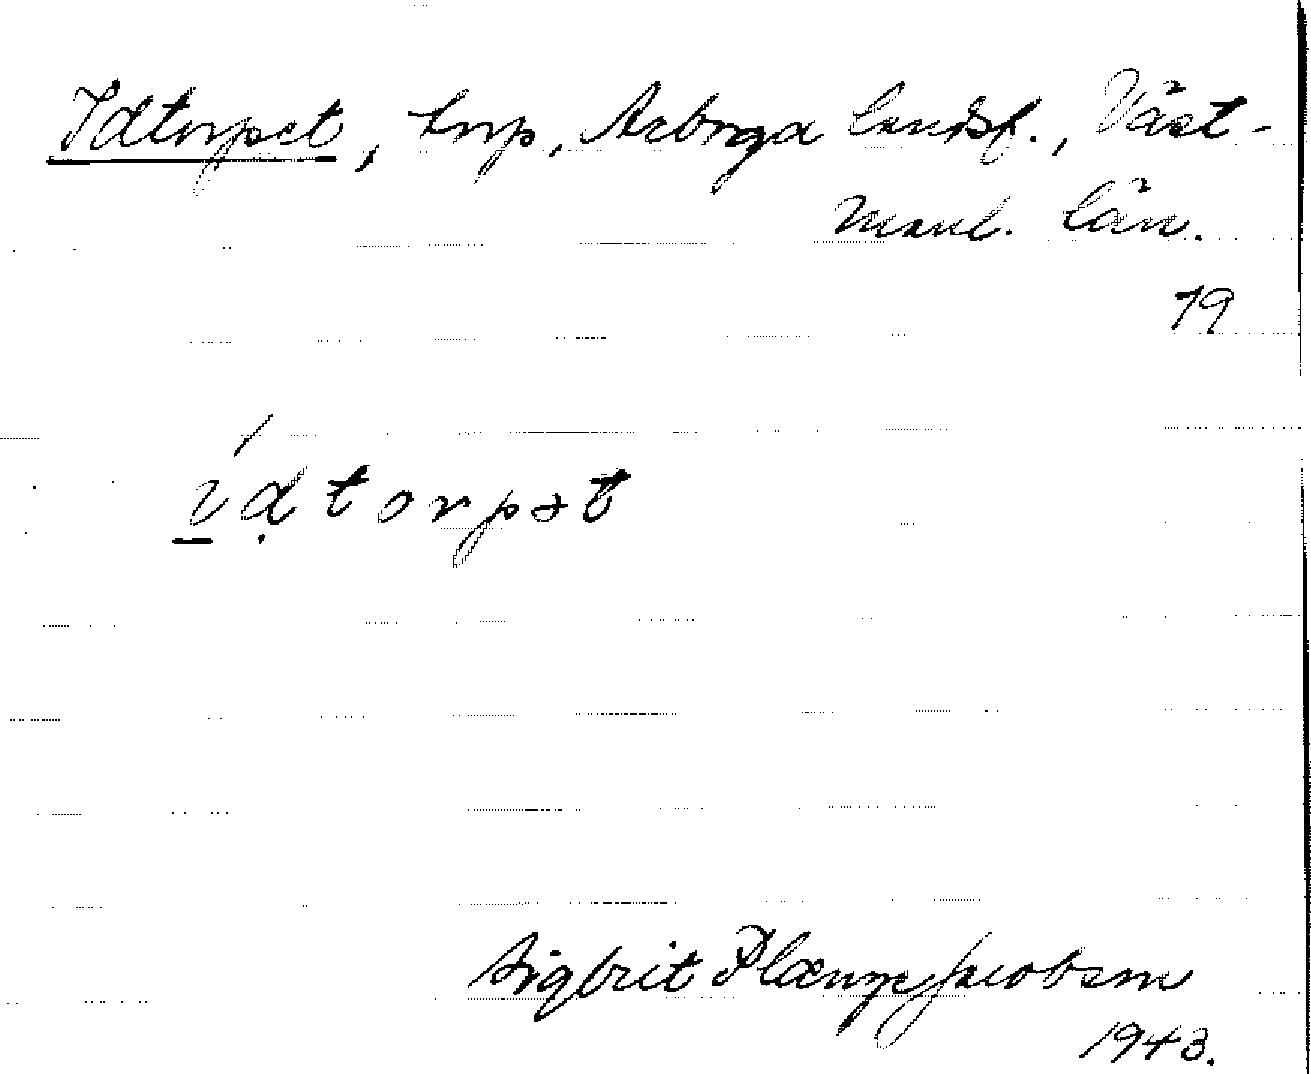 Idtorpet, torp, Arboga landsf., Väst-
manl. län.
79
í̱ḍtorpət
Sigbrit Plænge Jacobson
1943.